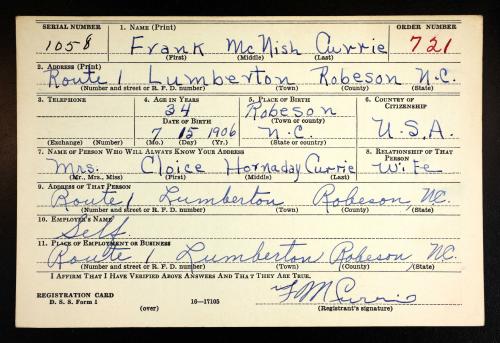 SERIAL NUMBER 1. NAME (Print) ORDER NUMBER
1058 Frank McNish Currie 721
(First) (Middle) (Last)
2. ADDRESS (Print)
Route 1 Lumberton Robeson N.C.
(Number and street or R. F. D. number) (Town) (County) (State)
3. TELEPHONE 4. AGE IN YEARS 5. PLACE OF BIRTH 6. COUNTRY OF CITIZENSHIP
34 Robeson
DATE OF BIRTH (Town or county)
7 15 1906 N.C. U.S.A.
(Exchange) (Number) (Mo.) (Day) (Yr.) (State or country)
7. NAME OF PERSON WHO WILL ALWAYS KNOW YOUR ADDRESS 8. RELATIONSHIP OF THAT PERSON
Mrs. Cloice Hornaday Currie Wife
(Mr., Mrs., Miss) (First) (Middle) (Last)
9. ADDRESS OF THAT PERSON
Route 1 Lumberton Robeson, N.C.
(Number and street or R. F. D. number) (Town) (County) (State)
10. EMPLOYER'S NAME
Self.
11. PLACE OF EMPLOYMENT OR BUSINESS
Route 1 Lumberton Robeson N.C.
(Number and street or R. F. D. number) (Town) (County) (State)
I AFFIRM THAT I HAVE VERIFIED ABOVE ANSWERS AND THAT THEY ARE TRUE.
REGISTRATION CARD
D. S. S. Form 1 (over) 16—17105 F M Currie
(Registrant's signature)